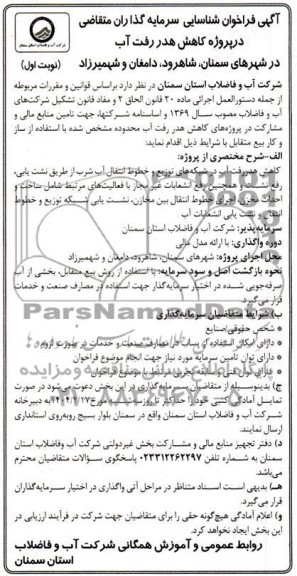 آگهی فراخوان شناسایی سرمایه گذاران متقاضی
درپروژه کاهش هدر رفت آب
در شهرهای سمنان، شاهرود، دامغان و شهمیرزاد
(نوبت اول)
شرکت آب و فاضلاب استان سمنان
شرکت آب و فاضلاب استان سمنان در نظر دارد براساس قوانین و مقررات مربوطه
از جمله دستورالعمل اجرائی ماده ۲۰ قانون الحاق ۲ و مفاد قانون تشکیل شرکت‌های
آب و فاضلاب مصوب سال ۱۳۶۹ و اساسنامه شرکتها، جهت تامین منابع مالی و
مشارکت در پروژه‌های کاهش هدر رفت آب محدوده مشخص شده با استفاده از ساز
و کار بیع متقابل با شرایط ذیل اقدام نماید:
الف-شرح مختصری از پروژه:
کاهش هدررفت آب در شبکه‌های توزیع و خطوط انتقال آب شرب از طریق نشت یابی،
رفع نشت و همچنین رفع انشعابات غیر مجاز با فعالیت‌های مرتبط شامل ساخت و
احداث مخزن، اجرای خطوط انتقال بین مخازن، نشت یابی شبکه توزیع و خطوط
انتقال، نشت یابی انشعابات آب
سرمایه‌پذیر: شرکت آب و فاضلاب استان سمنان
دوره واگذاری: با ارائه مدل مالی
محل اجرای پروژه: شهرهای سمنان، شاهرود، دامغان و شهمیرزاد
نحوه بازگشت اصل و سود سرمایه: با استفاده از روش بیع متقابل، بخشی از آب
صرفه‌جویی شده در اختیار سرمایه گذار جهت استفاده در مصارف صنعت و خدمات
قرار می‌گیرد.
ب) شرایط متقاضیان سرمایه‌گذاری
شخص حقوقی/صنایع
دارای امکان استفاده از پساب در مصارف صنعت و خدمات در صورت لزوم
دارای توان تامین سرمایه مورد نیاز جهت انجام موضوع فراخوان
ج) بدینوسیله از متقاضیان سرمایه‌گذاری در این بخش دعوت می‌شود در صورت
شرکت آب و فاضلاب استان سمنان واقع در سمنان بلوار بسیج روبه‌روی استانداری
ارسال نمایند.
د) دفتر تجهیز منابع مالی و مشارکت بخش غیردولتی شرکت آب وفاضلاب استان
سمنان به شماره تلفن ۰۲۳۳۱۲۶۲۲۹۷ پاسخگوی سؤالات متقاضیان محترم
می‌باشد.
ه) بدیهی است اسناد متناظر در مراحل آتی واگذاری در اختیار سرمایه‌گذاران
قرار می‌گیرد.
و) اعلام آمادگی هیچ‌گونه حقی را برای متقاضیان جهت شرکت در فرآیند ارزیابی در
این بخش ایجاد نخواهد کرد.
روابط عمومی و آموزش همگانی شرکت آب و فاضلاب
استان سمنان